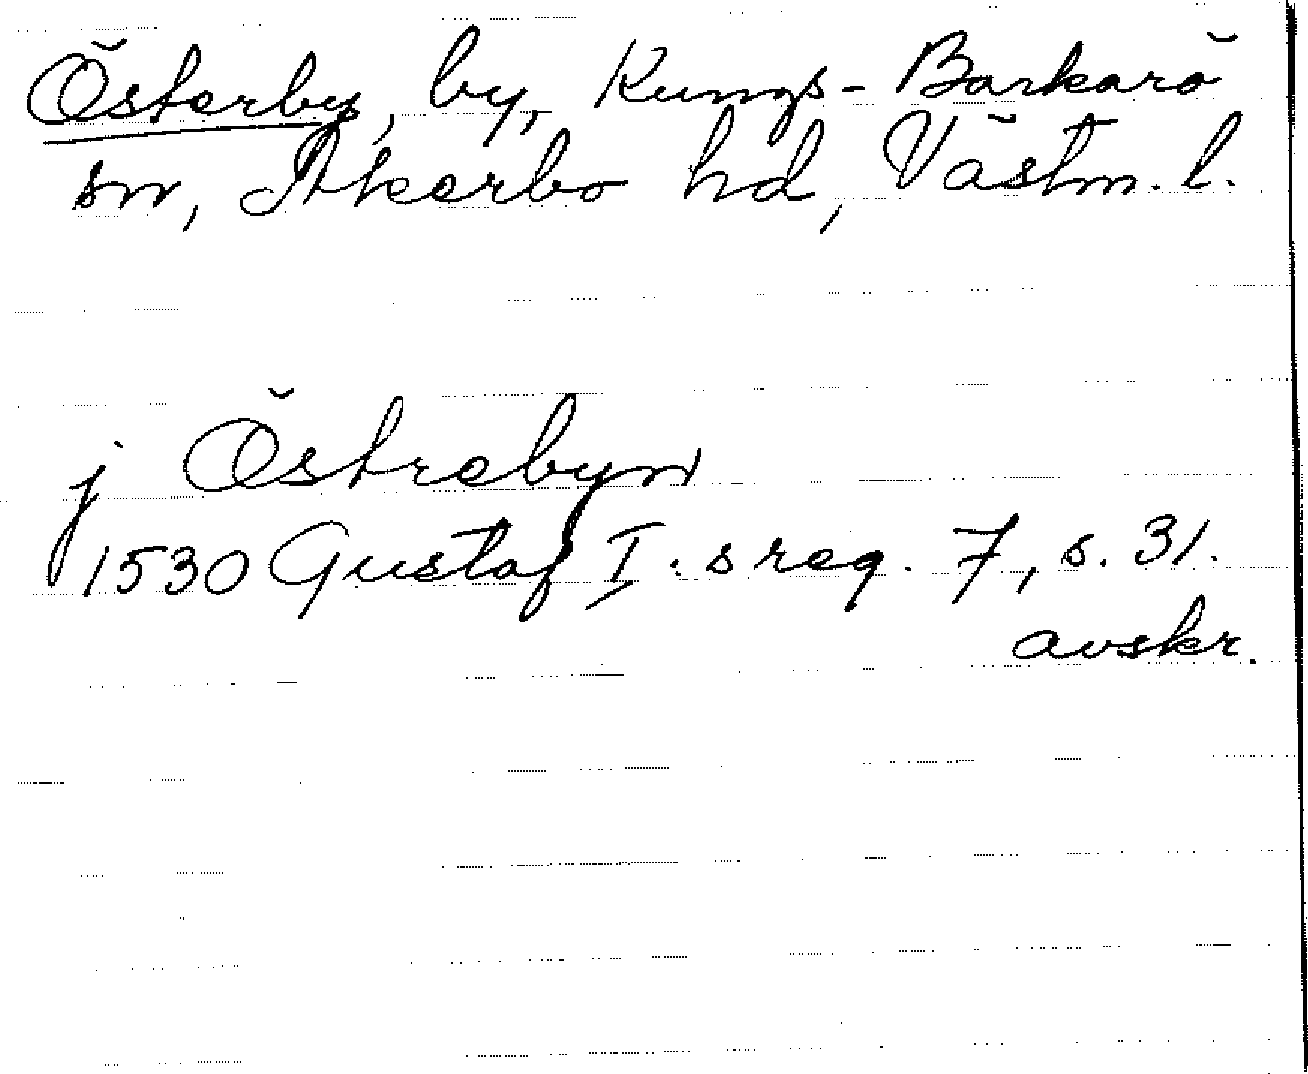 Österby, by, Kungs-Barkarö
sn, Åkerbo hd, Västm. l.
j Östrebyn
1530 Gustaf I:s reg. 7, s. 31.
avskr.